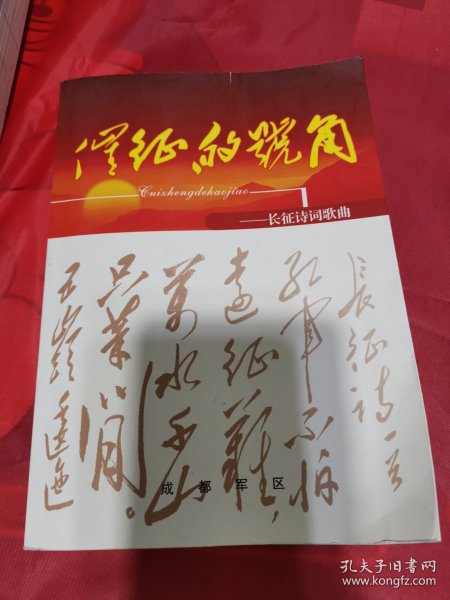 催征的號角
Cuizhengdehaojiao
——长征诗词歌曲
長征詩一首
紅軍不怕
遠征難，
萬水千山
只等閒。
五嶺逶迤
成都军区
孔夫子旧书网
www.kongfz.com